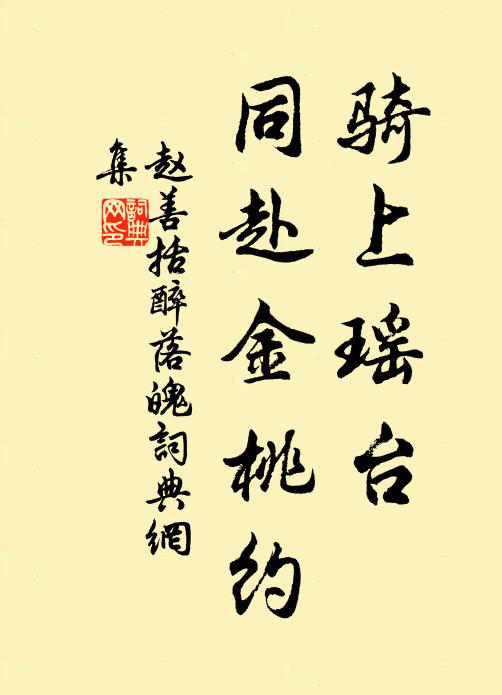 骑上瑶台
同赴金桃约
赵善括醉落魄詞典網
集
詞典
网印